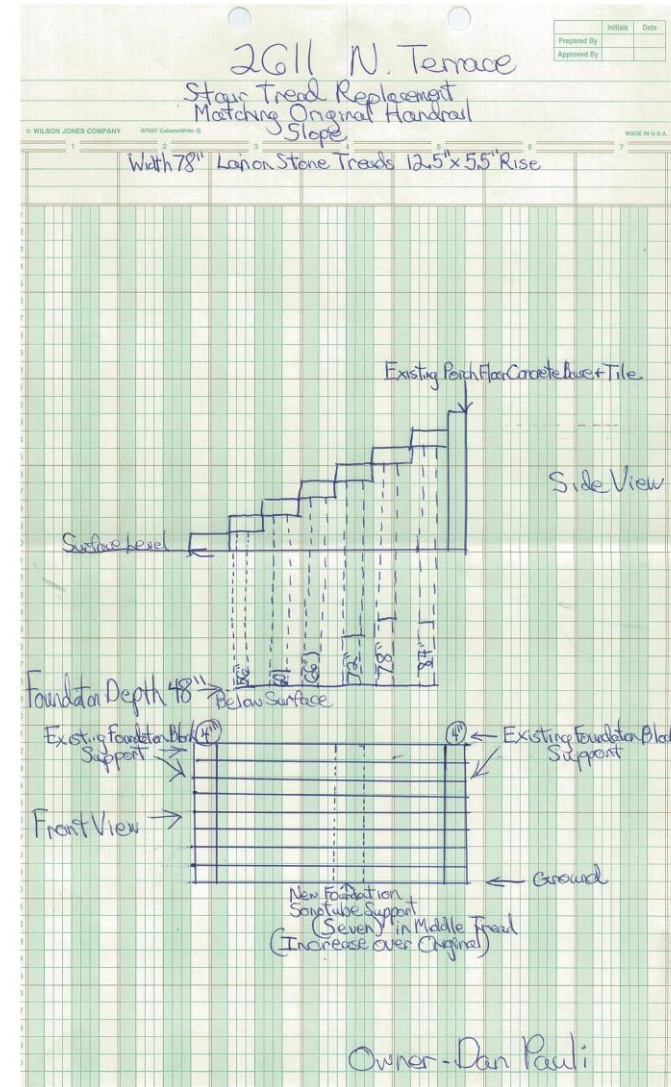 Initials Date
Prepared By
Approved By
2611 N. Terrace
Stair Tread Replacement
Matching Original Handrail
Slope
© WILSON JONES COMPANY G7507 ColumnWrite ® MADE IN U.S.A.
1 2 3 4 5 6 7
Width 78" Lanon Stone Treads 12.5" x 5.5" Rise
Existing Porch Floor Concrete Base + Tile
Side View
Surface Level
66" 72" 78" 84"
Foundation Depth 48"
Below Surface
Existing Foundation Block 4"
Support
4" Existing Foundation Block
Support
Front View
Ground
New Foundation
Sonotube Support
(Seven) in Middle Tread
(Increase over Original)
Owner - Dan Pauli